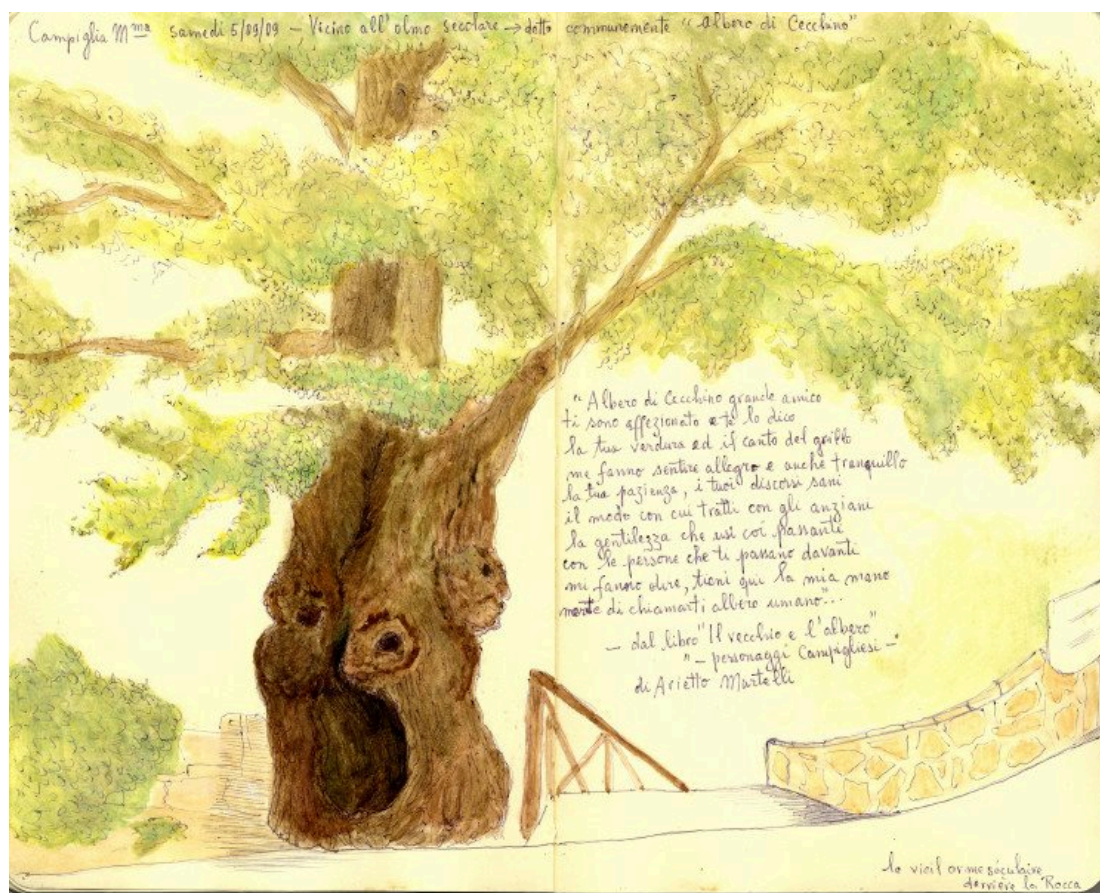 Campiglia Mma samedi 5/09/09 — Vicino all'olmo secolare → detto communemente "Albero di Cecchino"
"Albero di Cecchino grande amico
ti sono affezionato e te lo dico
la tua verdura ed il canto del grillo
me fanno sentire allegro e anche tranquillo
la tua pazienza, i tuoi discorsi sani
il modo con cui tratti con gli anziani
la gentilezza che usi coi passanti
con le persone che ti passano davanti
mi fanno dire, tieni qui la mia mano
di chiamarti albero umano"...
— dal libro "Il vecchio e l'albero"
"— personaggi Campigliesi —"
di Arietto Martelli
le vieil orme séculaire
derrière la Rocca